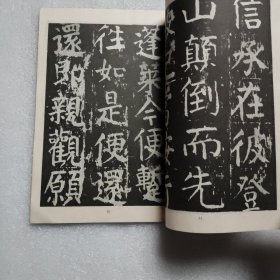 信承在彼登
山顛倒而先
蓬萊今便暫
往如是便還
還即親觀願